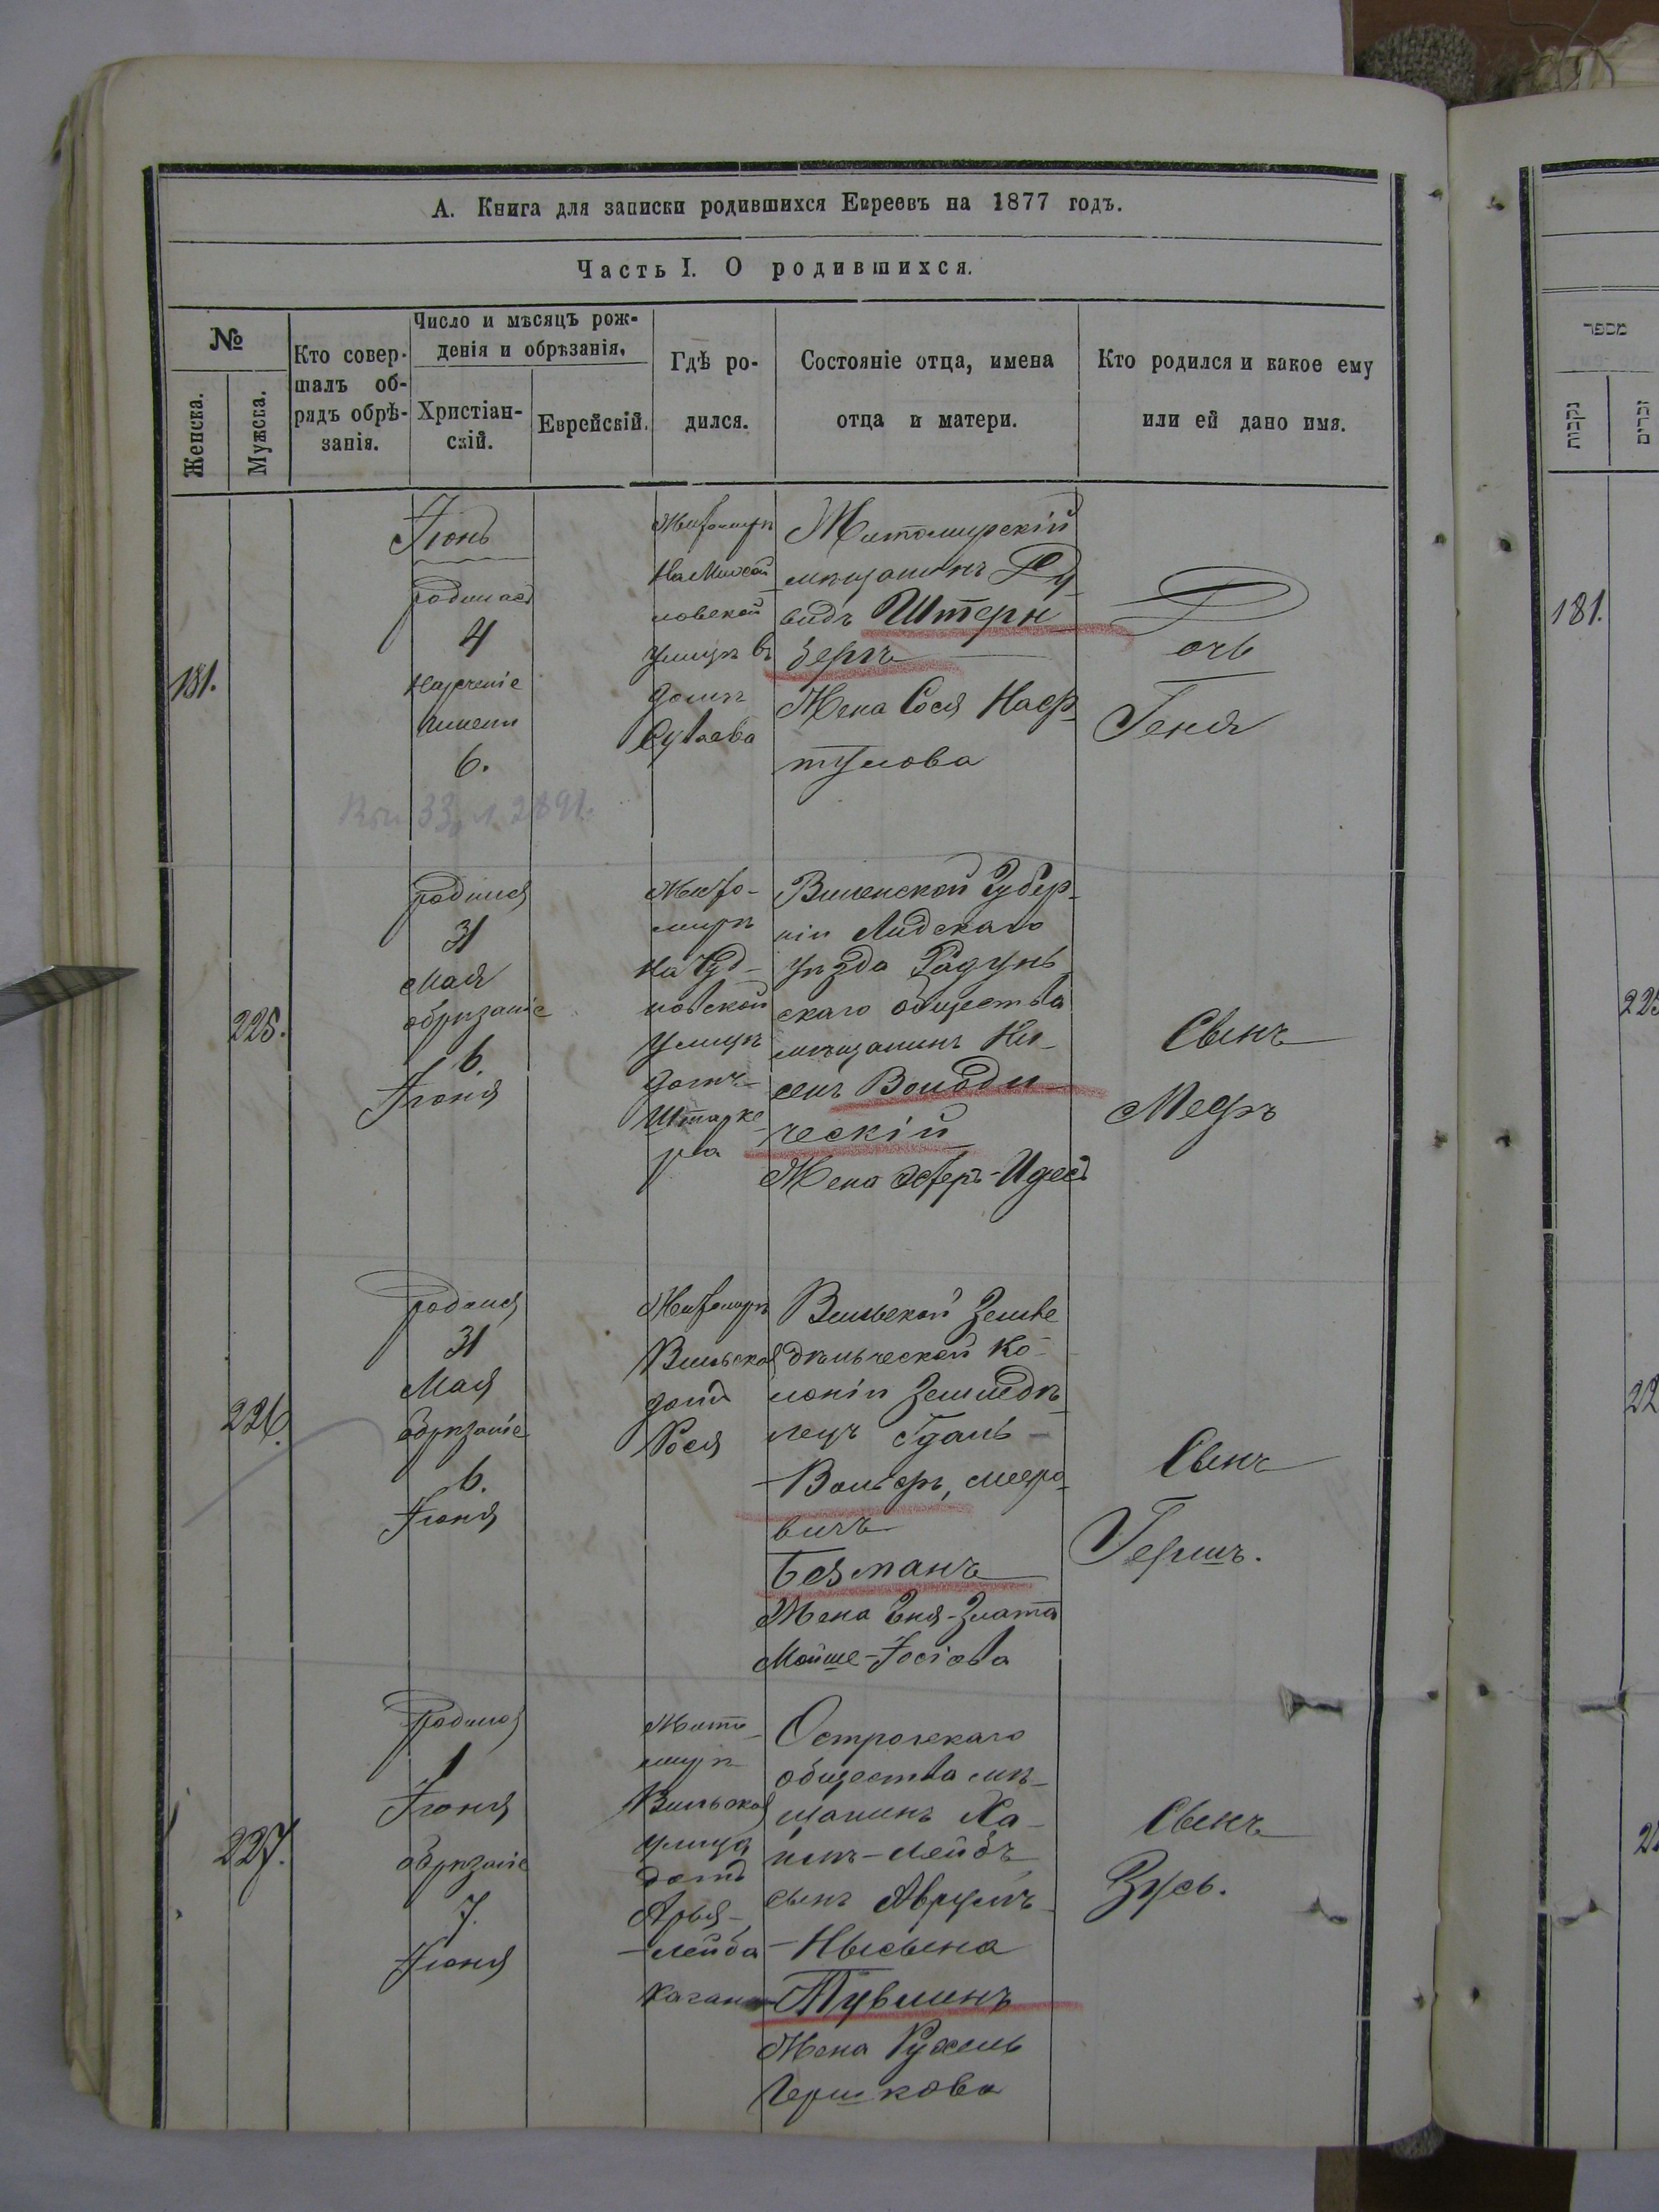 А. Книга для записки родившихся Евреевъ на 1877 годъ.
Часть I. О родившихся.
№
Женска.
Мужска.
Кто совер-
шалъ об-
рядъ обрѣ-
занія.
Число и мѣсяцъ рож-
денія и обрѣзанія.
Христіан-
скій.
Еврейскій.
Гдѣ ро-
дился.
Состояніе отца, имена
отца и матери.
Кто родился и какое ему
или ей дано имя.
181.
Іюнь
родилась
4
Нареченіе
имени
6.
Житомиръ
улицѣ въ
домѣ
Житомирскій
мѣщанинъ Ду
видъ Штерн
бергъ
Жена Сося Наф
тулова
Дочь
Геня
225.
родился
31
Мая
обрѣзаніе
6.
Іюня
Жито-
миръ
на Чуд-
новской
улицѣ
домъ
Штарке
ра
Виленской Губер-
ніи Лидскаго
уѣзда Радунь
скаго общества
мѣщанинъ Ни-
сенъ
ческій
Жена Эстеръ-Идесь
Сынъ
Мееръ
226.
родился
31
Мая
обрѣзаніе
6.
Іюня
Житомиръ
Вильская
домъ
Рося
Вильской Земле
дѣльческой Ко-
лоніи Земледѣ-
лецъ Гдаль-
-Вольфъ, Меро-
вичъ
Бозманъ
Жена Геня-Злата
Мойше-Іосіова
Сынъ
Гершъ.
227.
родился
1
Іюня
обрѣзаніе
7.
Іюня
Жито-
миръ
Вильская
улица
домъ
Арья-
-Лейба
Каган
Острогскаго
общества мѣ-
щанинъ Ха-
имъ-Лейбъ
сынъ Аврумъ-
-Нысына
Тувминъ
Жена Рухель
Гершкова
Сынъ
Зусь.
מספר
נקבות
זכרים
181.
225
22
22